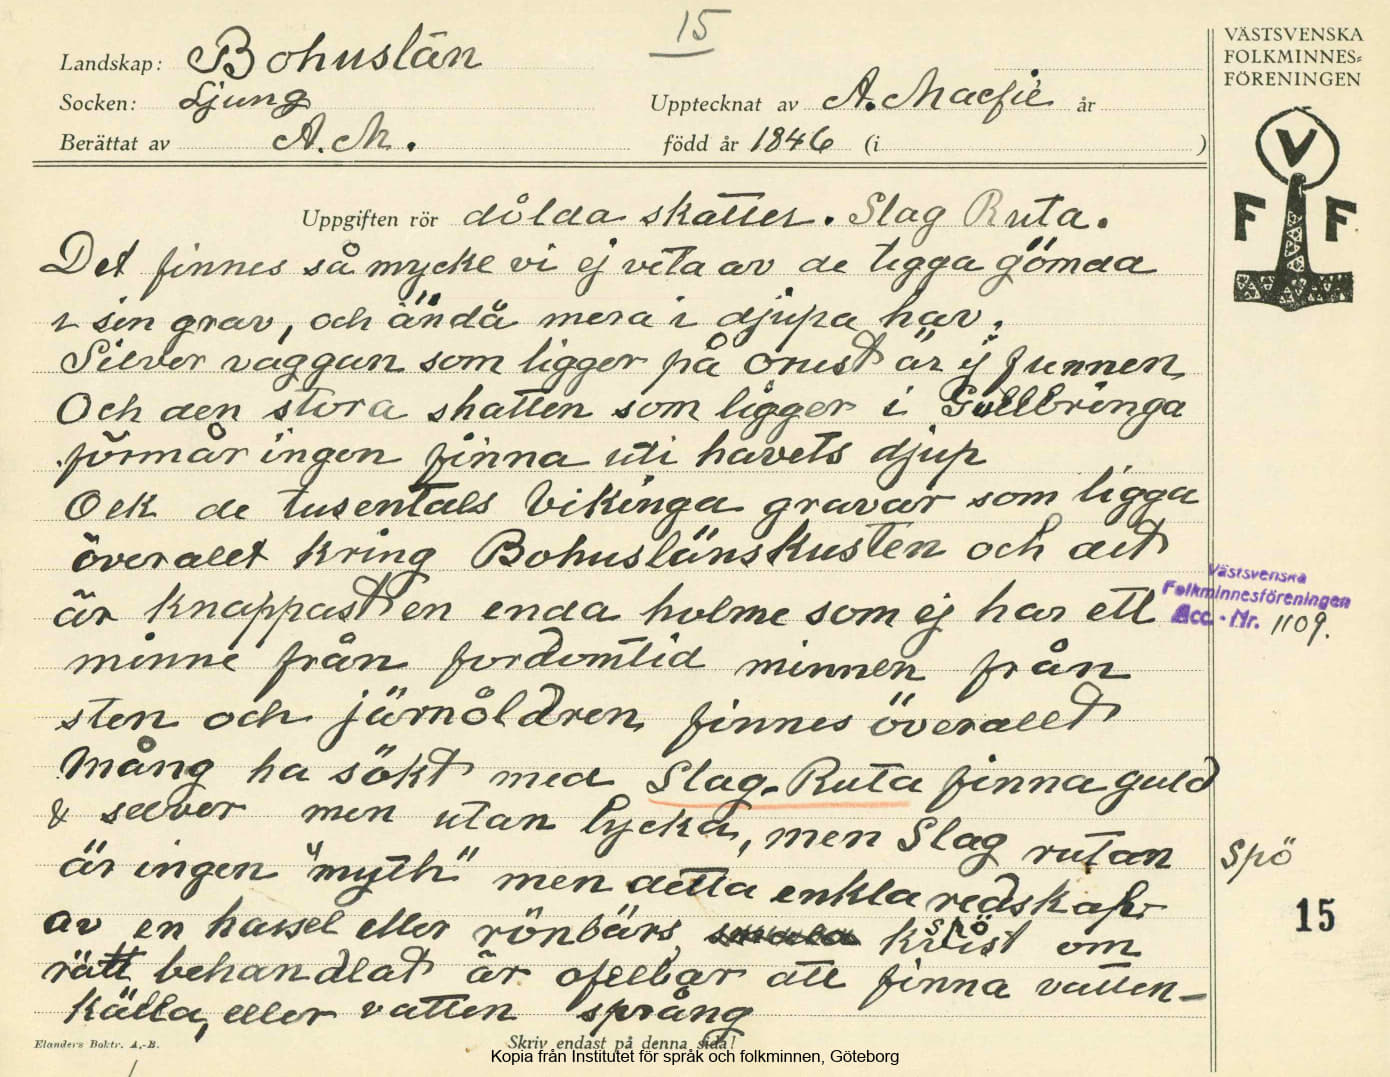 15
Landskap: Bohuslän
Socken: Ljung
Upptecknat av A. Macfie år
Berättat av A. M.
född år 1846 (i )
VÄSTSVENSKA
FOLKMINNES=
FÖRENINGEN
V
F F
Uppgiften rör dolda skatter. Slag Ruta.
Det finnes så mycke vi ej veta av de ligga gömda
i sin grav, och ändå mera i djupa hav.
Silver vaggan som ligger på Orust är ej funnen
Och den stora skatten som ligger i Gullbringa
förmår ingen finna uti havets djup
Ock de tusentals Vikinga gravar som ligga
överallt kring Bohuslänskusten och det
är knappast en enda holme som ej har ett
minne från fordomtid minnen från
sten och järnåldren finnes överallt
Mång ha sökt med Slag-Ruta finna guld
& selver men utan lycka, men Slag rutan
är ingen "myth" men detta enkla redskap
av en hassel eller rönbärs kvist om
spö
rätt behandlat är ofelbar att finna vatten-
källa, eller vatten språng
Västsvenska
Folkminnesföreningen
Acc. - Nr. 1109.
Spö
15
Elanders Boktr. A.-B.
Skriv endast på denna sida!
Kopia från Institutet för språk och folkminnen, Göteborg